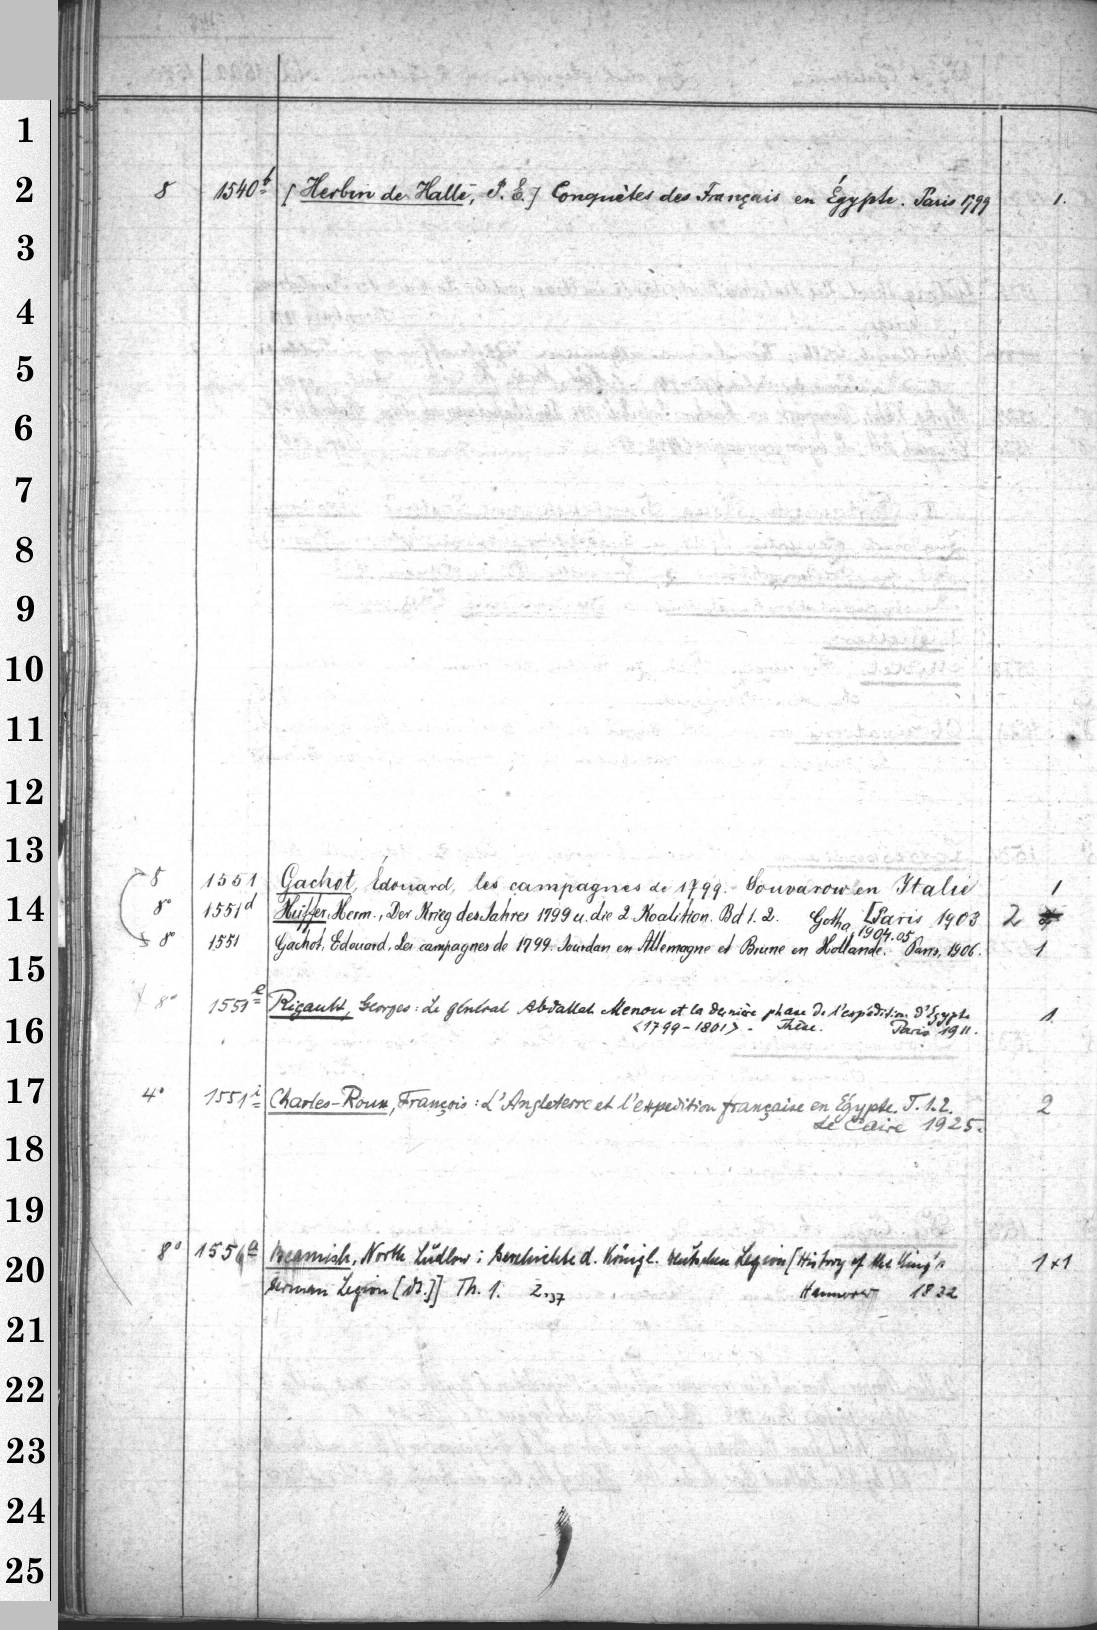 1
2
3
4
5
6
7
8
9
10
11
12
13
14
15
16
17
18
19
20
21
22
23
24
25
8 1540b [Herbin de Halle, P. E.] Conquêtes des Français en Égypte. Paris 1799 1.
8 1551 Gachot, Édouard, les campagnes de 1799. Souvarow en Italie 1
8° 1551d Hüffer, Herm., Der Krieg des Jahres 1799 u. die 2. Koalition. Bd 1. 2. Gotha, [Paris 1903 2
1904.05
8° 1551 Gachot, Edouard, Les campagnes de 1799. Jourdan en Allemagne et Brune en Hollande. Paris, 1906. 1
8° 1551e Rigault, Georges: Le général Abdallah Menou et la dernière phase de l'expédition d'Égypte 1
<1799-1801>. Thèse. Paris 1911.
4° 1551i Charles-Roux, François: L'Angleterre et l'expedition française en Égypte. T. 1.2. 2
Le Caire 1925.
8° 1556a Beamish, North Ludlow: Geschichte d. Königl. Deutschen Legion [History of the King's 1+1
German Legion [dt.]] Th. 1. 2,37 Hannover 1832